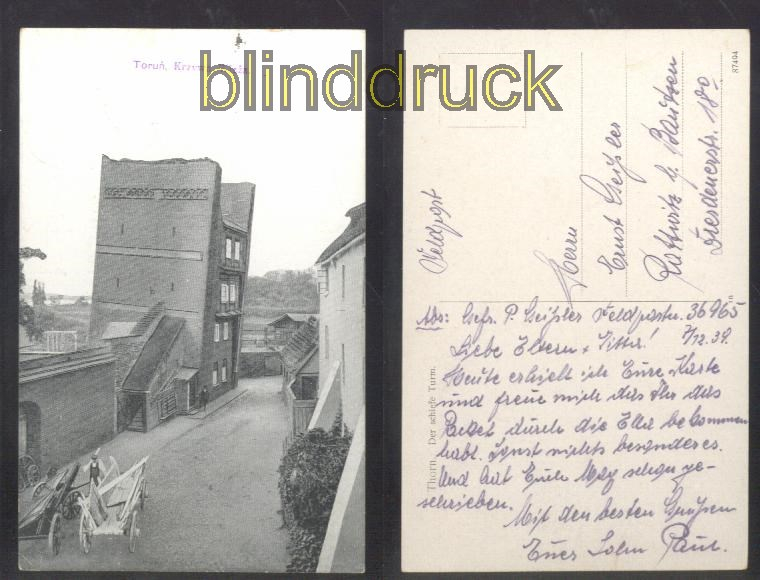 Toruń, Krzywa Wieża.
blinddruck
Feldpost
Herrn
Ernst Geißler
Rattwitz b. Bautzen
Dresdenerstr. 180
87404
Thorn. Der schiefe Turm.
Abs: Gefr. P. Geißler Feldpostnr. 36965
7/12.39.
Liebe Eltern +
Heute erhielt ich Eure Karte
und freue mich das Ihr das
Paket durch die Ella bekommen
habt. Sonst nichts besonderes.
Und hat Euch schon ge-
schrieben.
Mit den besten Grüßen
Euer Sohn Paul.